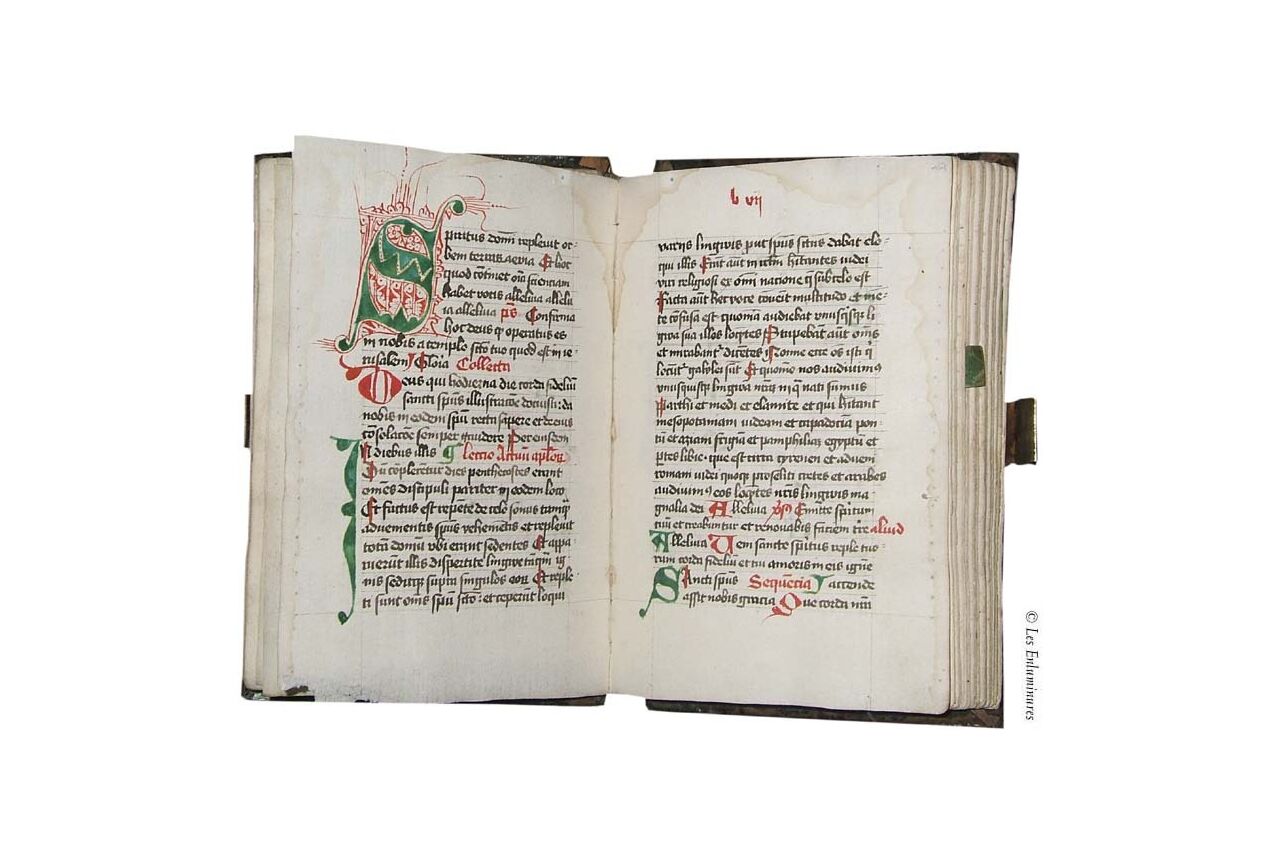 Spiritus domī repleuit or-
bem terrarū aevia Et hoc
quod cōtinet oīa scientiam
habet vocis alleluia allelu
ia alleluia ps Confirma
hoc deus qd operatus es
in nobis a templo scto tuo quod est in ie-
rusalem Gloia Collecta
Deus qui hodierna die corda fideliū
sancti spūs illustracōe docuisti: da
nobis in eodem spū recta sapere et de eius
cōsolacōe semper gaudere Per eiusdem
In diebus illis Leccio Actuū aplōꝝ
Cū cōplerētur dies penthecostes erant
omēs discipuli pariter in eodem loco
Et factus est repēte de celo sonus tamqꝫ
aduenientis spūs vehemētis et repleuit
totā domū vbi erant sedentes Et appa-
ruerūt illis dispertite lingwe tāqm ig
nis seditqꝫ supra singulos eoꝝ Et reple
ti sunt omēs spū scto: et ceperūt loqui
l vii
varijs lingwis put spūs sctūs dabat elo-
qui illis Erāt aūt in irhlm hītantes iudei
viri religiosi ex omī nacione q̄ sub celo est
Facta aūt hec voce cōuēit multitudo et mē-
te cōfusa est quoniā audiebat vnusqꝫsqꝫ li
gwa sua illos loqētes Stupebāt aūt omēs
et mirabantʳ dicētes Nonne ecce oēs isti q̄
locūtʳ galylei sūt Et quomō nos audiuimꝰ
vnusquisqꝫ lingwā nrām in q̄ nati sumus
Parthi et medi et elamite et qui hītant
mesopotamiam iudeam et capadociā pon-
tū et asiam frigiā et pamphiliā egyptū et
ptes libie que est circa cyrenen et aduene
romani iudei quoqꝫ proseliti cretes et arabes
audiuimꝰ eos loqētes nrīs lingwis ma
gnalia dei Alleluia vs Emitte spiritum
tuū et creabuntur et renouabis faciem tr̄e aliud
Alleluia Veni sancte spiritus reple tuo-
rum corda fideliū et tui amoris in eis ignē
Sancti spūs Sequēcia accende
assit nobis gracia Que corda nrā
© Les Enluminures